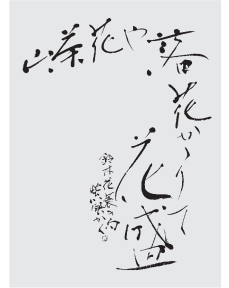 山茶花や、
落花かゝりて
花盛
鈴木花蓑の句